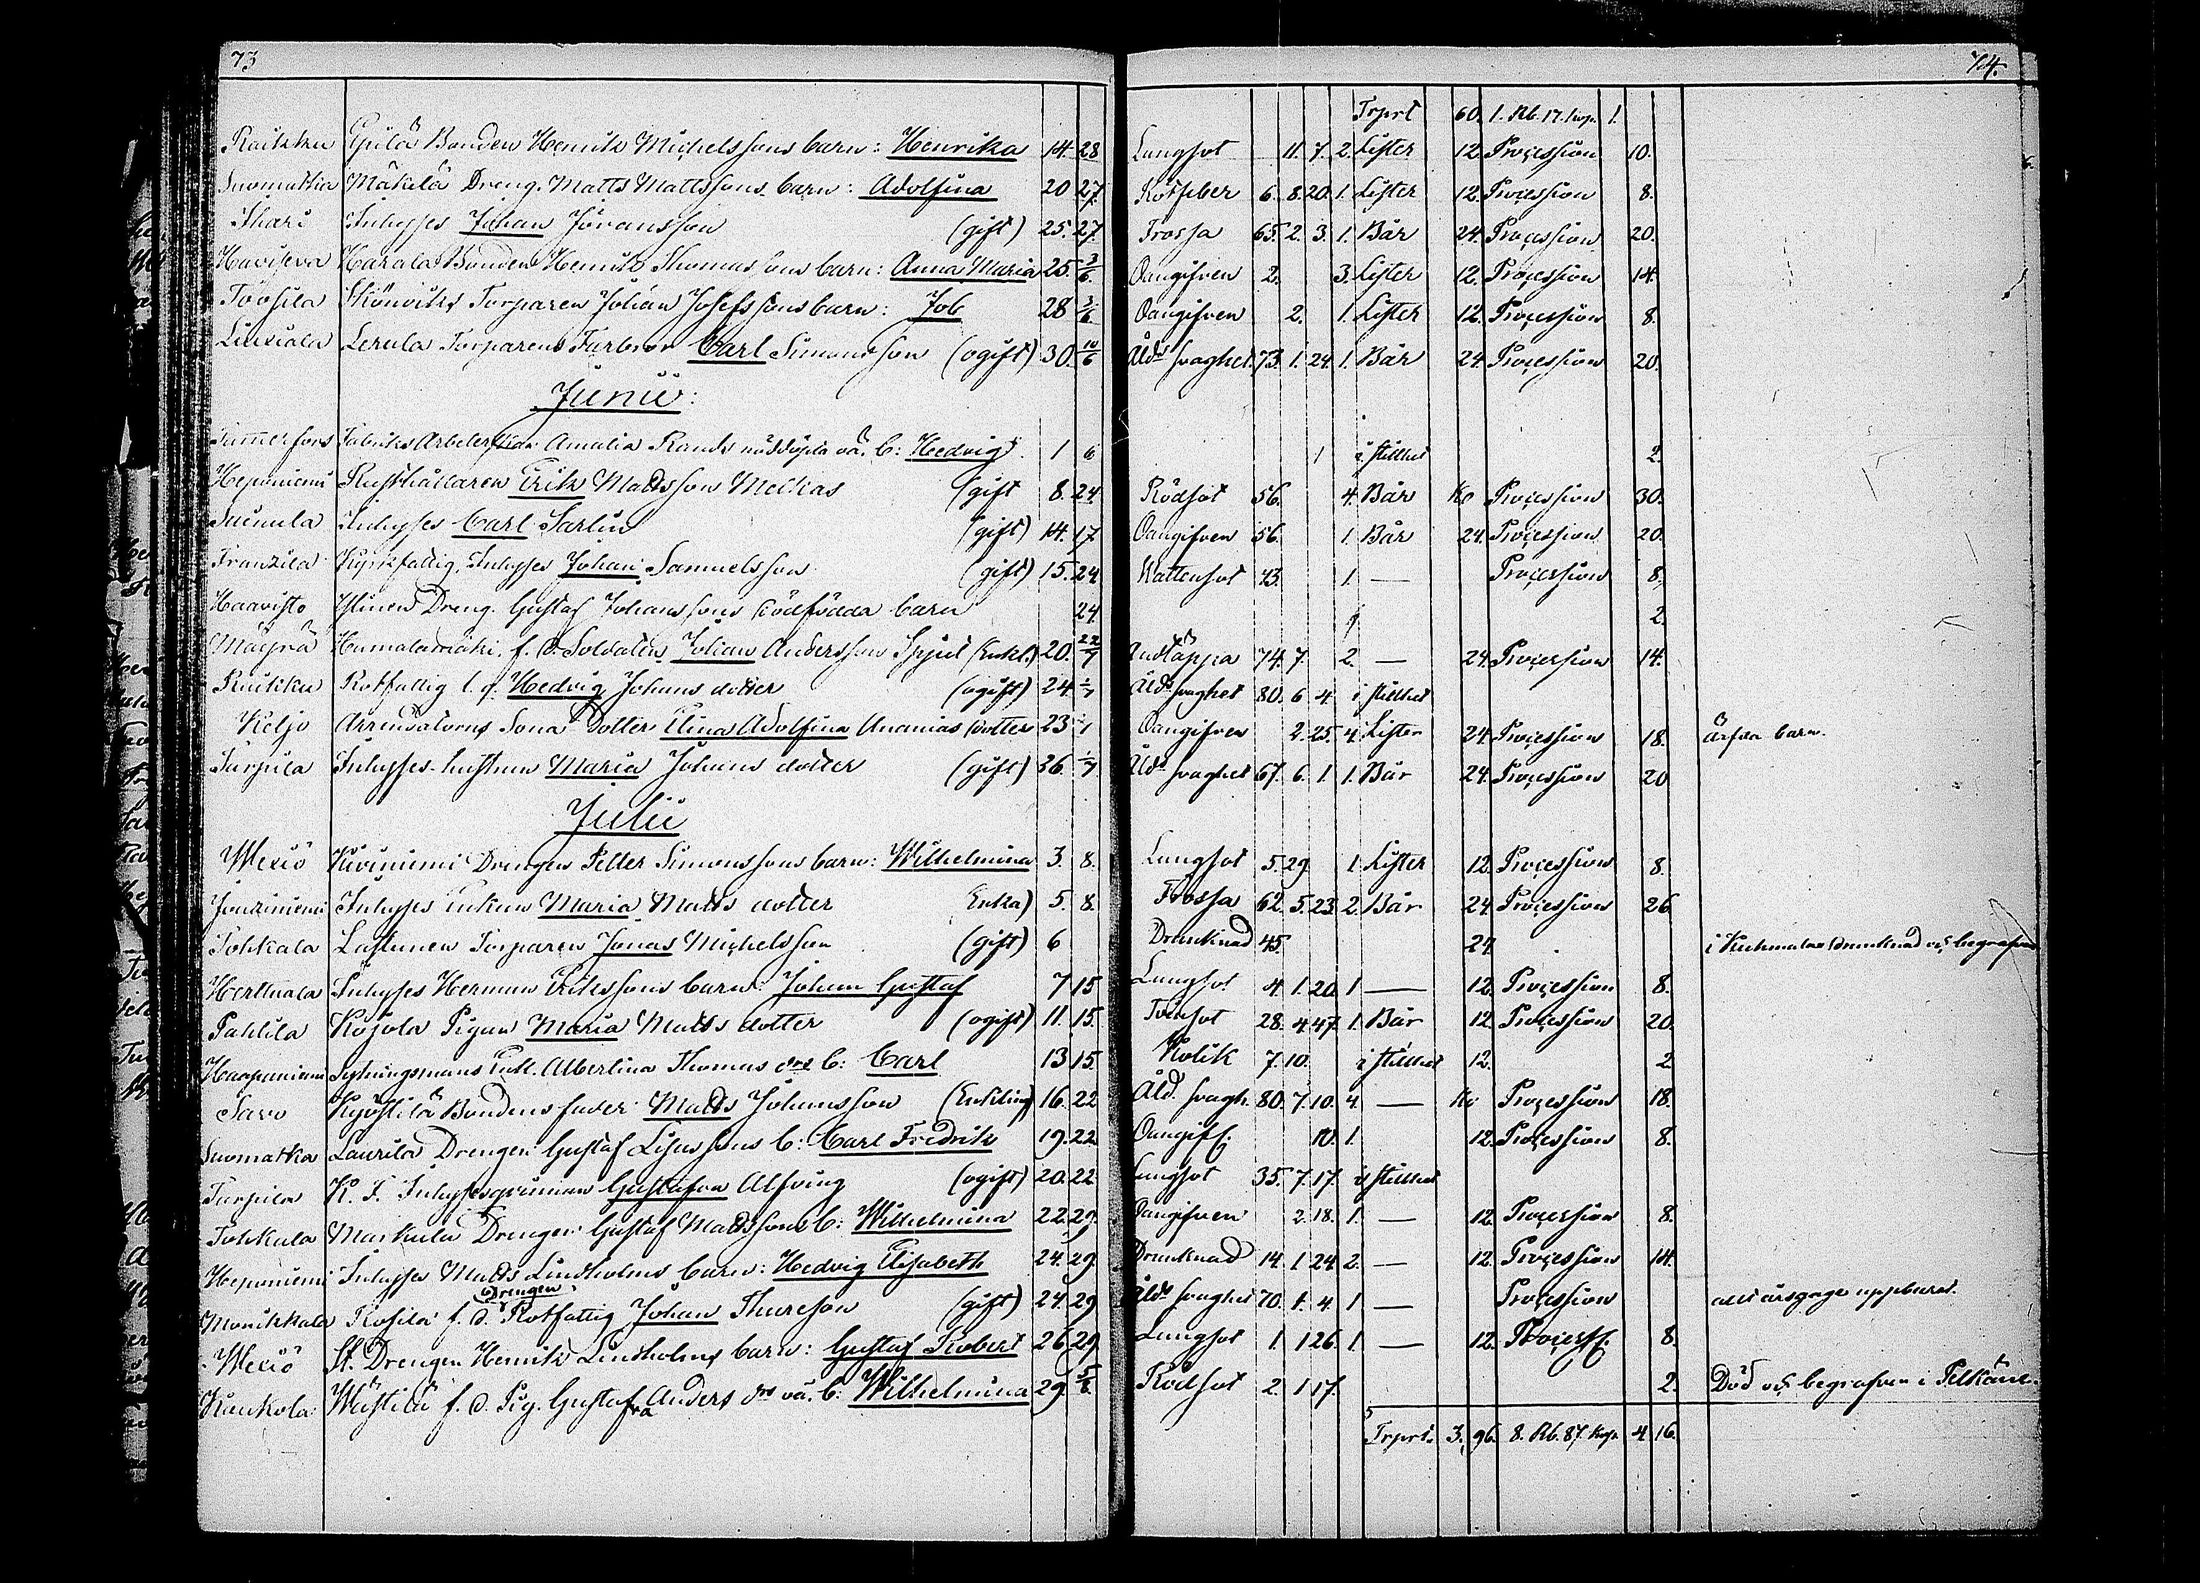 73
74.
Trprt 60. 1. Rb. 17. kop. 1.
Raikku Ylilä Bonden Henrik Michelssons barn: Henrika 14. 28 Lungsot 11. 7. 2. Lister 12. Procession 10.
Suomatka Mäkilä Dreng. Matts Mattssons barn: Adolfina 20 27. Rötfeber 6. 8. 20. 1. Lister 12. Procession 8.
Inhyses Johan Jöransson (gift) 25. 27. Frossa 65. 2. 3. 1. Bår 24. Procession 20.
Haviseva Harala Bonden Henrik Thomassons barn: Anna Maria 25. 3/6. Oangifven 2. 3. Lister 12. Procession 14.
Torparen Johan Josefssons barn: Job 28 3/6 Oangifven 2. 1. Lister 12. Procession 8.
Liuxiala Lerula Torparens Farbror Carl Simonsson (ogift) 30. 10/6 Åld. svaghet. 73. 1. 24. 1. Bår 24. Procession 20.
Junii:
Amalia Rands b: Hedvig 1 6 1 i stillhet 2.
Heponiemi Rusthållaren Erik Mattsson Melkas (gift 8. 24 Rödsot 56. 4. Bår Procession 30.
Suinula Inhyses Carl Sarlin (gift) 14. 17 Oangifven 56. 1. Bår 24. Procession 20.
Franzila Kyrkfattig. Inhyses Johan Samuelsson (gift) 15. 24 Wattensot 43. 1. — Procession 8.
Haavisto Dreng. Gustaf Johanssons dödfödda barn 24. 2.
Mäyrä Humalamäki, f. d. Soldaten Johan Andersson Spjut (Enkl.) 20. 22/7 Andtäppa 74. 7. 2. — 24. Procession 14.
Raikku Rotfattig l. q. Hedvig Johans dotter (ogift) 24. 1/7 Åld. svaghet 80. 6 4. i stillhet
Keljo Arrendatorns Sona dotter Elina Adolfina Ananias dotter 23 Oangifven 2. 25. 4. Lister 24. Procession 18. barn.
Tarpila Inhyses hustrun Maria Johans dotter (gift) 26. 1/7 Åld. svaghet 67. 6. 1. 1. Bår 24. Procession 20
Julii
Wexiö Kiviniemi Drengen Petter Simonssons barn: Wilhelmina 3. 8. Lungsot 5. 29. 1. Lister 12. Procession 8.
Inhyses Enkan Maria Matts dotter Enka) 5. 8. Frossa 62. 5. 23. 2. Bår 24. Procession 26.
Tohkala Lastunen Torparen Jonas Michelsson (gift) 6 Drunknad 45. 24. i Kuhmalax drunknad och begrafven
Herttuala Inhyses Herman Erikssons barn: Johan Gustaf 7 15 Lungsot 4. 1. 20. 1 — 12. Procession 8.
Pahtila Kojola Pigan Maria Matts dotter (ogift) 11. 15. Tvinsot 28. 4. 47. 1. Bår 12. Procession 20.
Haapaniemi Sytningsmans Albertina Thomas drs b: Carl 13 15. Kolik 7. 10. i stillhet 12. 2
Savo Kyöstilä Bondens fader Matts Johansson (Enkling) 16. 22 Åld. svagh. 80. 7. 10. 4. — Procession 18.
Suomatka Laurila Drengen Gustaf b: Carl Fredrik 19. 22 Oangif. 10. 1. 12. Procession 8.
Tarpila K. F. Inhysesqvinnan Gustafva Alfving (ogift) 20. 22 Lungsot 35. 7. 17. i stillhet
Tohkala Markula Drengen Gustaf Mattssons b: Wilhelmina 22. 29. Oangifven 2. 18. 1. — 12. Procession 8.
Heponiemi Inhyses Matts Lindholms barn: Hedvig Elisabeth 24. 29. Drunknad 14. 1. 24 2. — 12. Procession 14.
Drengen
Rosila f. d. Rotfattig Johan Thureson (gift) 24. 29 Åld. svaghet 70. 1. 4. 1 — Procession allt årsgage uppburet.
Wexiö St. Drengen Henrik Lindholms barn: Gustaf Robert 26. 29. Lungsot 1. 1 26. 1. — 12. Process. 8.
Kaukola Wästilä f. d. Pig. Gustafva Anders drs b: Wilhelmina 29. 5/8. Rödsot 2. 1 17. 2. Död och begrafven i Pelkäne.
Trprt. 3. 96. 8. Rb. 87. kop. 4 16.